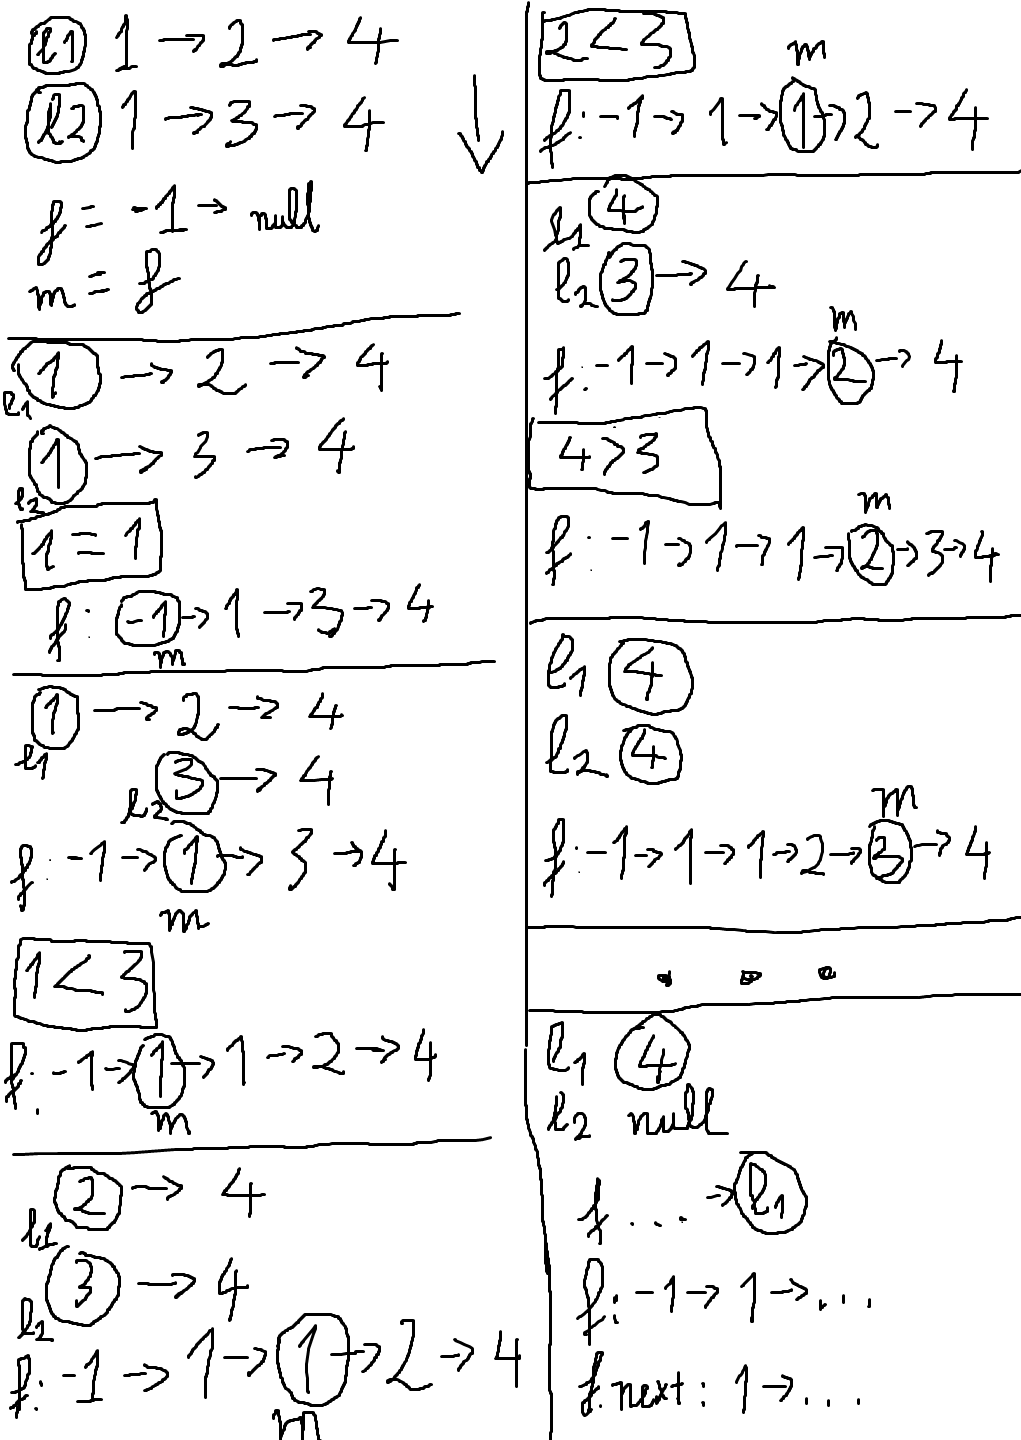 l1 1 → 2 → 4
l2 1 → 3 → 4
f = -1 → null
m = f
1 → 2 → 4
l1
1 → 3 → 4
l2
1 = 1
f: -1 → 1 → 3 → 4
m
1 → 2 → 4
l1
3 → 4
l2
f: -1 → 1 → 3 → 4
m
1 < 3
f: -1 → 1 → 1 → 2 → 4
m
2 → 4
l1
3 → 4
l2
f: -1 → 1 → 1 → 2 → 4
m
2 < 3
m
f: -1 → 1 → 1 → 2 → 4
l1 4
l2 3 → 4
m
f: -1 → 1 → 1 → 2 → 4
4 > 3
m
f: -1 → 1 → 1 → 2 → 3 → 4
l1 4
l2 4
m
f: -1 → 1 → 1 → 2 → 3 → 4
...
l1 4
l2 null
f ... → l1
f: -1 → 1 → ...
f.next: 1 → ...